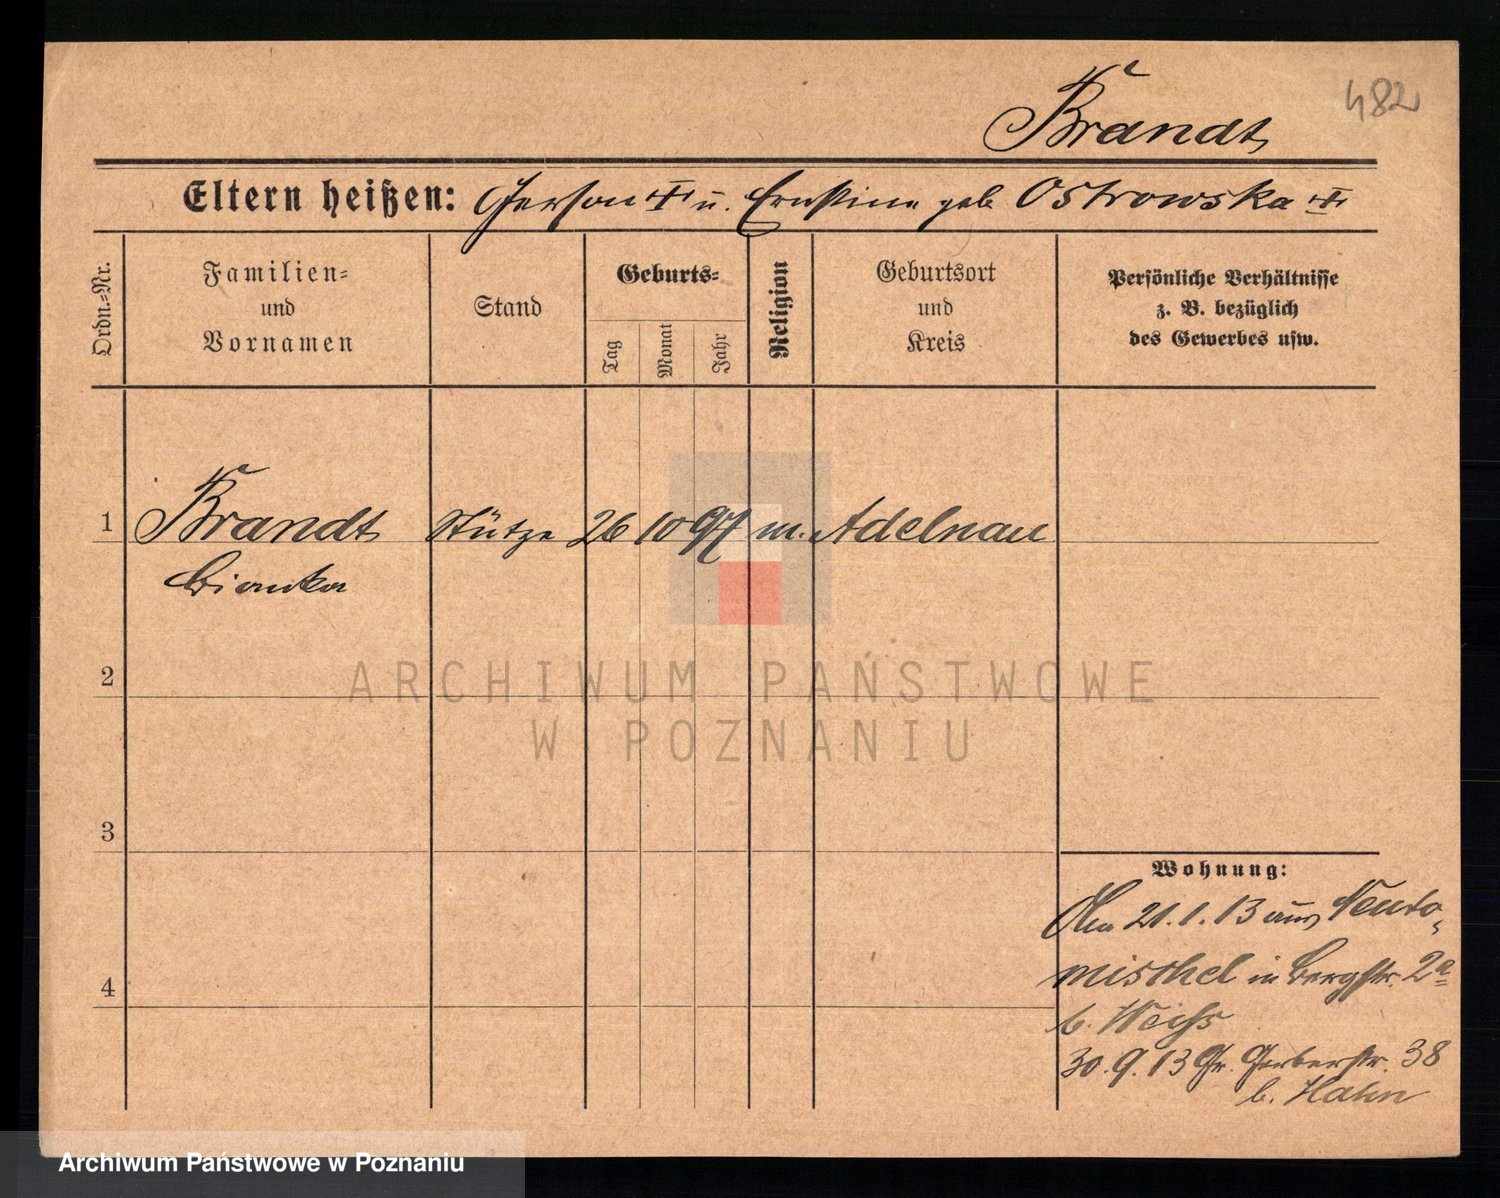 Brandt
482
Eltern heißen: Gerson † u. Ernstine geb Ostrowska †
Ordn.=Nr.
Familien=
und
Vornamen
Stand
Geburts=
Tag
Monat
Jahr
Religion
Geburtsort
und
Kreis
Persönliche Verhältnisse
z. B. bezüglich
des Gewerbes usw.
1 Brandt Stütze 26 10 97 m. Adelnau
Bianka
2
ARCHIWUM PAŃSTWOWE
W POZNANIU
3
Wohnung:
Am 21.1.13 aus Neuto-
mischel in Bergstr. 2a
b. Weiss
4
30.9.13 Gr. Gerberstr. 38
b. Hahn
Archiwum Państwowe w Poznaniu